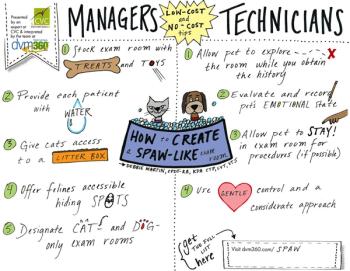 Presented
CVC
dvm360
MANAGERS
LOW-COST
and
NO-COST
tips
TECHNICIANS
1 Stock exam room with
TREATS and TOYS
2 Provide each patient
with
WATER
3 Give cats access
to a LITTER BOX
4 Offer felines accessible
hiding SPOTS
5 Designate CAT- and DOG-
only exam rooms
HOW to CREATE
a SPAW-LIKE exam
room
1 Allow pet to explore
the room while you obtain
the history
2 Evaluate and record
pet's EMOTIONAL state
3 Allow pet to STAY!
in exam room for
procedures (if possible)
4 Use GENTLE control and a
considerate approach
get THE FULL
LIST
here
Visit dvm360.com/ SPAW